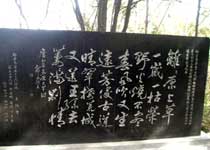 離〻原上草
一歲一枯榮
野火燒不盡
春風吹又生
遠芳侵古道
晴翠接荒城
又送王孫去
萋〻滿別情